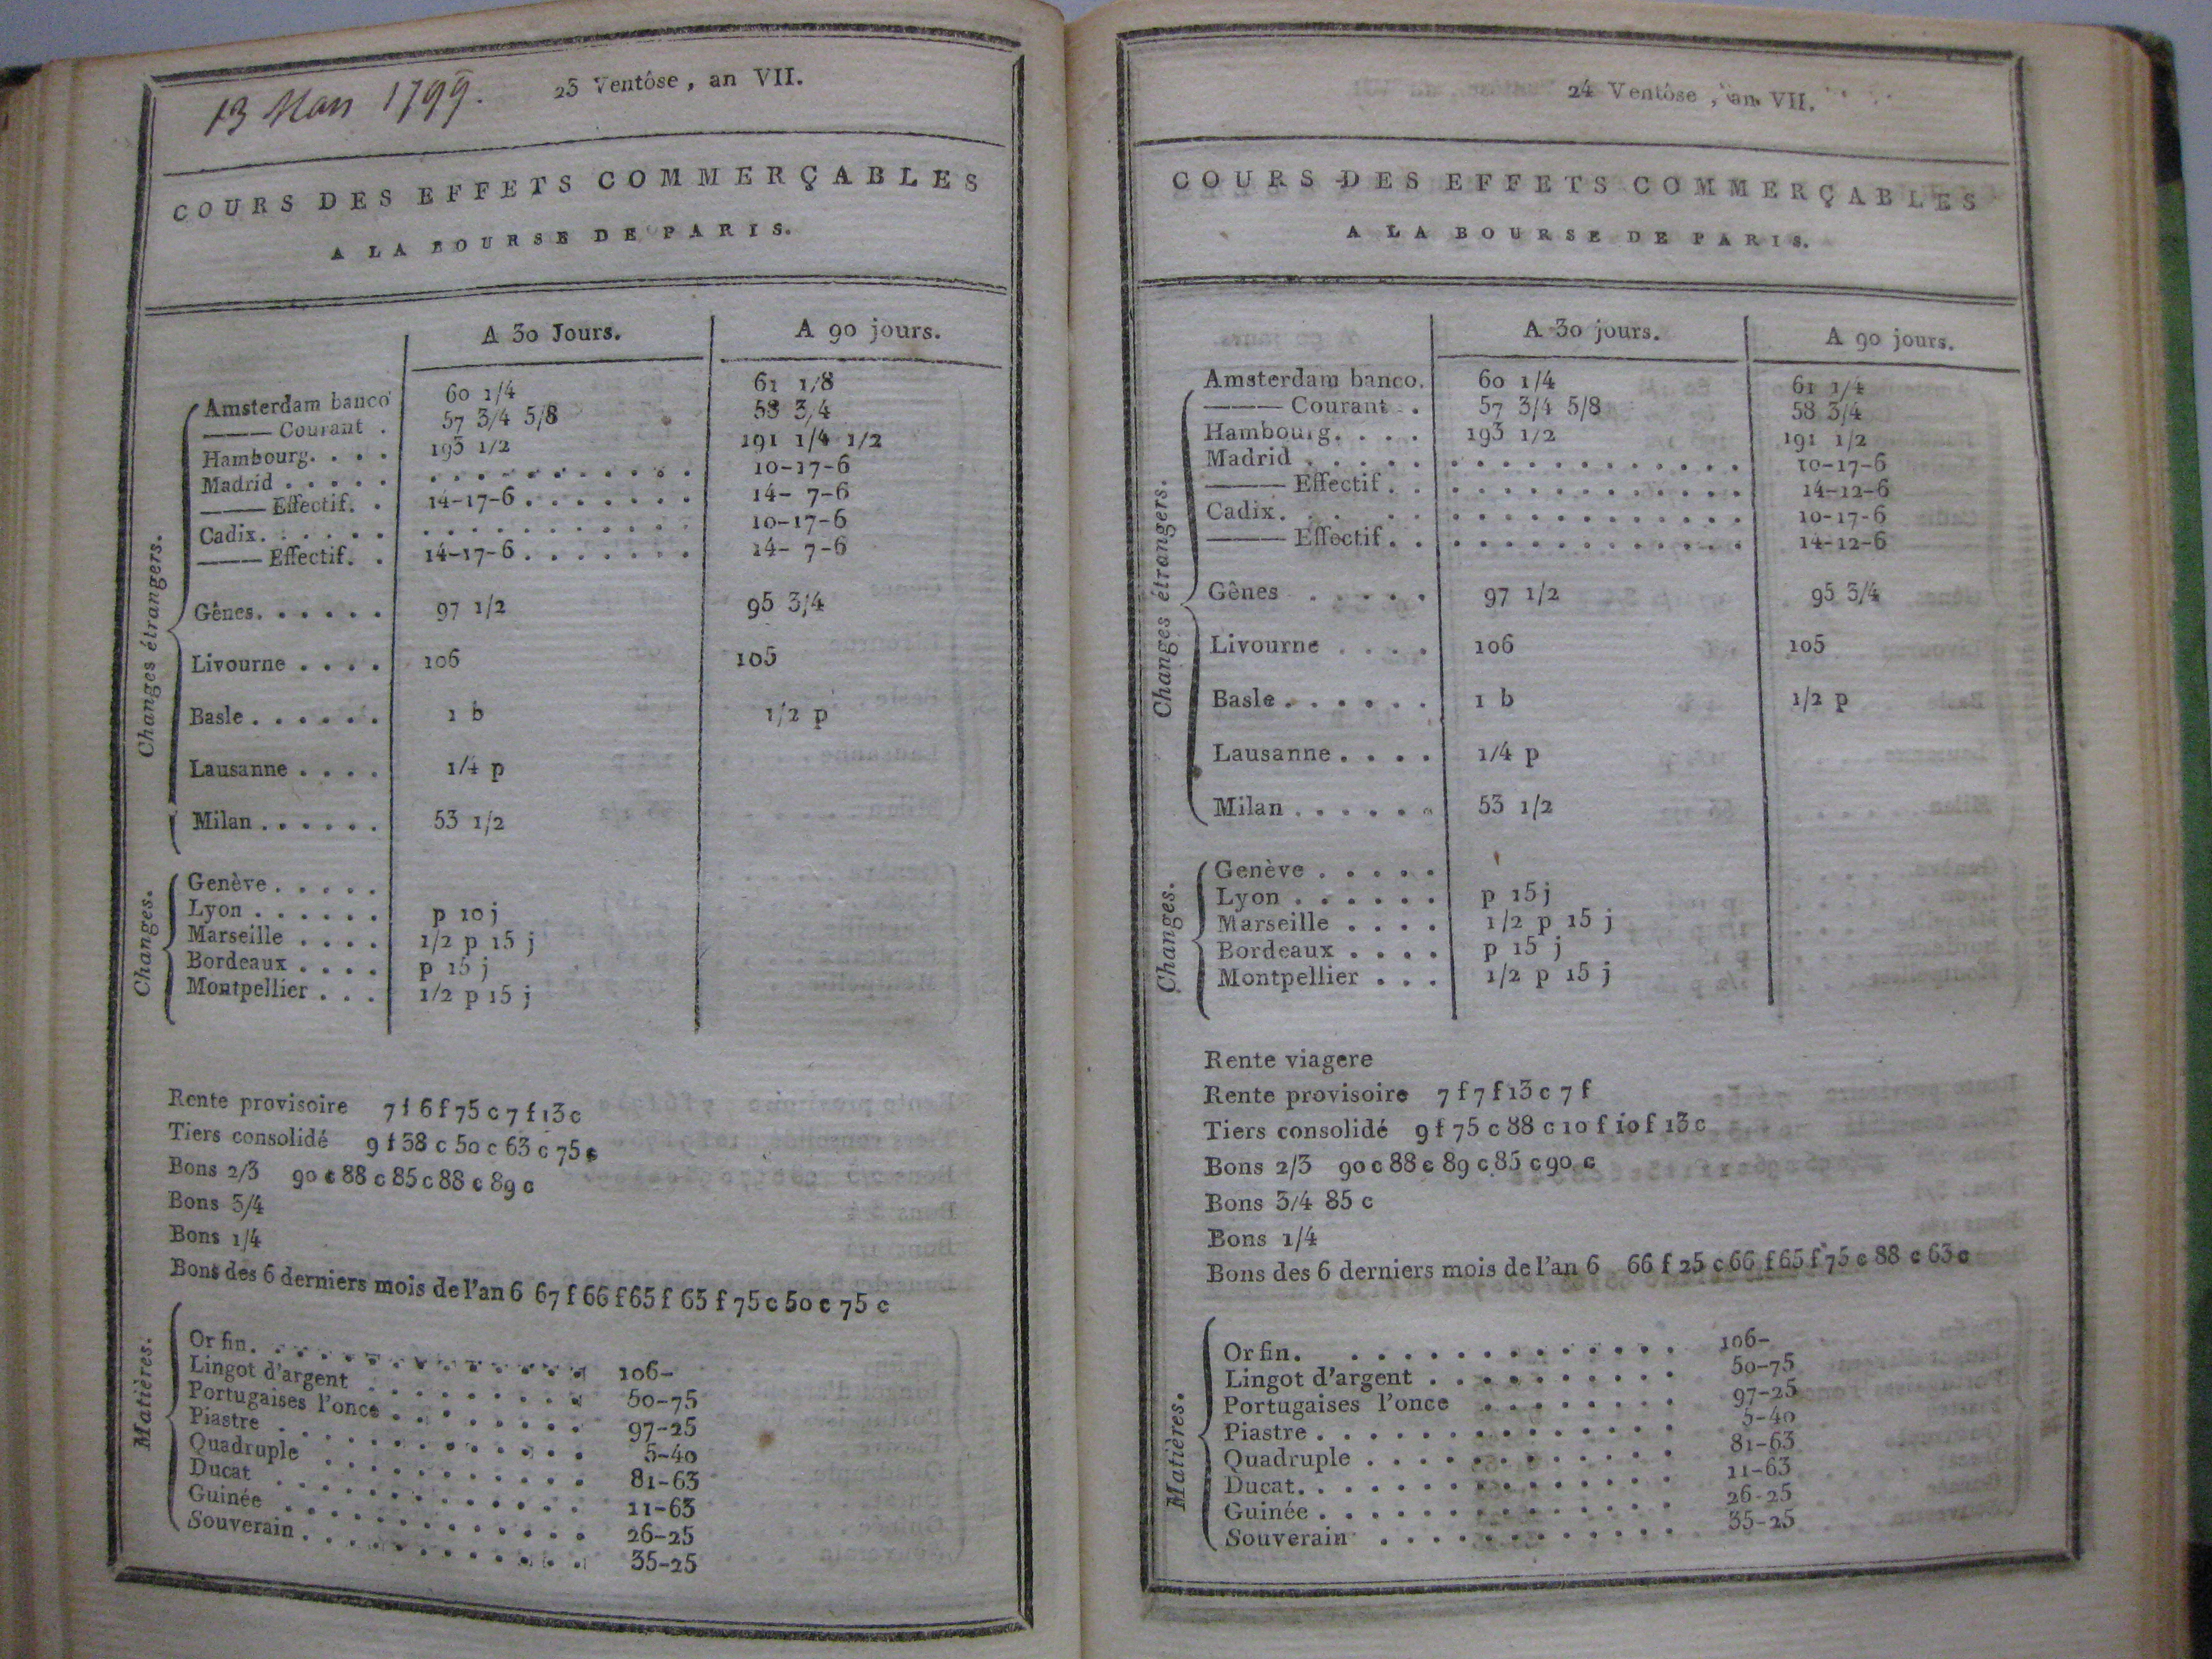 13 Mars 1799.
23 Ventôse, an VII.
COURS DES EFFETS COMMERÇABLES
A LA BOURSE DE PARIS.
A 30 Jours. A 90 jours.
Changes étrangers.
Amsterdam banco 60 1/4 61 1/8
——— Courant . 57 3/4 5/8 58 3/4
Hambourg. . . . 193 1/2 191 1/4 1/2
Madrid . . . . . . . . . . . . . . . . 10-17-6
——— Effectif. . 14-17-6 . . . . . . . 14- 7-6
Cadix. . . . . . . . . . . . . . . . . 10-17-6
——— Effectif. . 14-17-6 . . . . . . . 14- 7-6
Gênes. . . . . . 97 1/2 95 3/4
Livourne . . . . 106 105
Basle . . . . . . 1 b 1/2 p
Lausanne . . . . 1/4 p
Milan . . . . . . 53 1/2
Changes.
Genève . . . . .
Lyon . . . . . . p 10 j
Marseille . . . . 1/2 p 15 j
Bordeaux . . . . p 15 j
Montpellier . . . 1/2 p 15 j
Rente provisoire 7 f 6 f 75 c 7 f 13 c
Tiers consolidé 9 f 38 c 50 c 63 c 75 c
Bons 2/3 90 c 88 c 85 c 88 c 89 c
Bons 3/4
Bons 1/4
Bons des 6 derniers mois de l'an 6 67 f 66 f 65 f 65 f 75 c 50 c 75 c
Matières.
Or fin. . . . . . . . . . . . . . 106-
Lingot d'argent . . . . . . . . . 50-75
Portugaises l'once . . . . . . . . 97-25
Piastre . . . . . . . . . . . . . 5-40
Quadruple . . . . . . . . . . . . 81-63
Ducat . . . . . . . . . . . . . . 11-63
Guinée . . . . . . . . . . . . . 26-25
Souverain . . . . . . . . . . . . 35-25
24 Ventôse, an VII.
COURS DES EFFETS COMMERÇABLES
A LA BOURSE DE PARIS.
A 30 jours. A 90 jours.
Changes étrangers.
Amsterdam banco. 60 1/4 61 1/4
——— Courant . . 57 3/4 5/8 58 3/4
Hambourg. . . . 193 1/2 191 1/2
Madrid . . . . . . . . . . . . . . . . 10-17-6
——— Effectif . . . . . . . . . . . . . 14-12-6
Cadix. . . . . . . . . . . . . . . . . 10-17-6
——— Effectif . . . . . . . . . . . . . 14-12-6
Gênes . . . . . 97 1/2 95 3/4
Livourne . . . . 106 105
Basle . . . . . . 1 b 1/2 p
Lausanne . . . . 1/4 p
Milan . . . . . . 53 1/2
Changes.
Genève . . . . .
Lyon . . . . . . p 15 j
Marseille . . . . 1/2 p 15 j
Bordeaux . . . . p 15 j
Montpellier . . . 1/2 p 15 j
Rente viagere
Rente provisoire 7 f 7 f 13 c 7 f
Tiers consolidé 9 f 75 c 88 c 10 f 10 f 13 c
Bons 2/3 90 c 88 c 89 c 85 c 90 c
Bons 3/4 85 c
Bons 1/4
Bons des 6 derniers mois de l'an 6 66 f 25 c 66 f 65 f 75 c 88 c 63 c
Matières.
Or fin. . . . . . . . . . . . . . 106-
Lingot d'argent . . . . . . . . . . 50-75
Portugaises l'once . . . . . . . . 97-25
Piastre . . . . . . . . . . . . . . 5-40
Quadruple . . . . . . . . . . . . 81-63
Ducat. . . . . . . . . . . . . . . 11-63
Guinée . . . . . . . . . . . . . . 26-25
Souverain . . . . . . . . . . . . 35-25